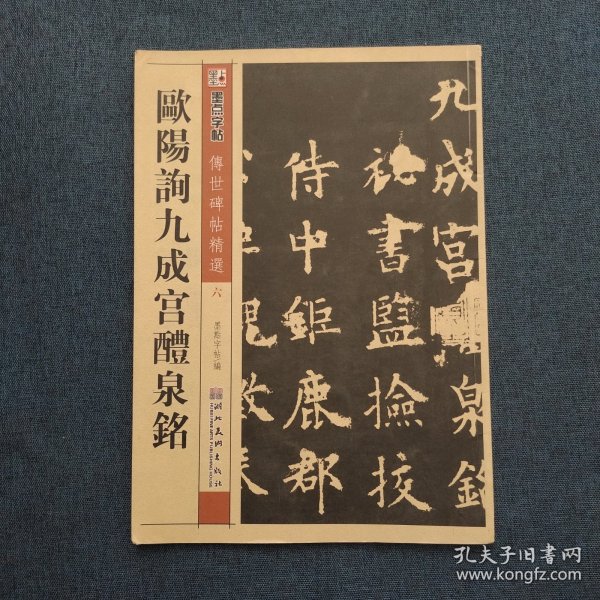 歐陽詢九成宫醴泉銘
墨点
墨点字帖
傳世碑帖精選
六
墨點字帖 編
湖北美術出版社
九成宫醴泉銘
祕書監撿挍
侍中鉅鹿郡
孔夫子旧书网
www.kongfz.com